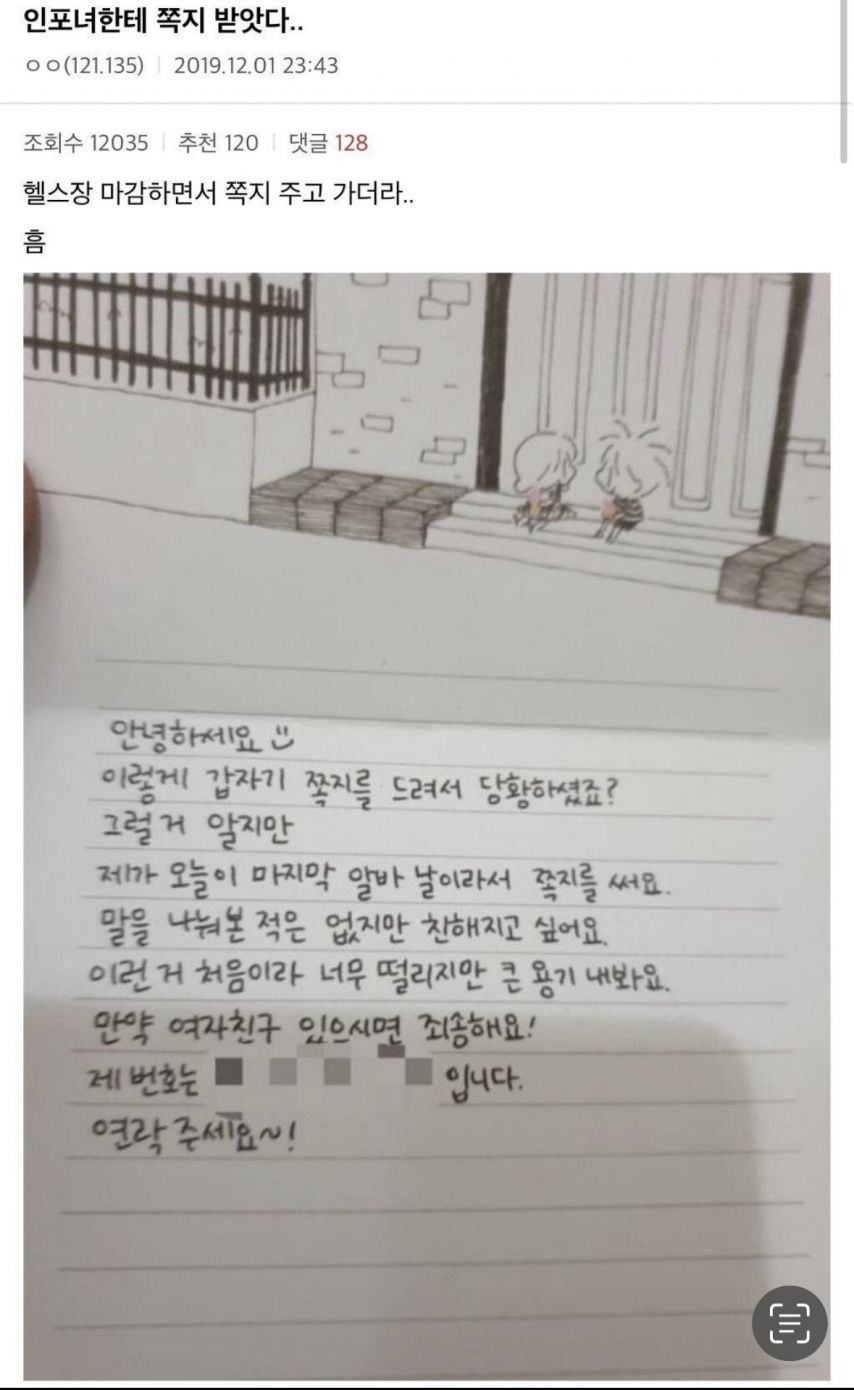 인포녀한테 쪽지 받앗다..
ㅇㅇ(121.135) | 2019.12.01 23:43
조회수 12035 | 추천 120 | 댓글 128
헬스장 마감하면서 쪽지 주고 가더라..
흠
안녕하세요
이렇게 갑자기 쪽지를 드려서 당황하셨죠?
그럴 거 알지만
제가 오늘이 마지막 알바 날이라서 쪽지를 써요.
말을 나눠본 적은 없지만 친해지고 싶어요.
이런 거 처음이라 너무 떨리지만 큰 용기 내봐요.
만약 여자친구 있으시면 죄송해요!
제 번호는 입니다.
연락 주세요~!